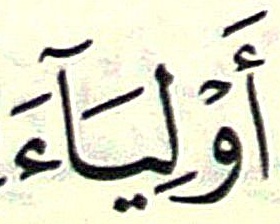 أَوْلِيَآءَ